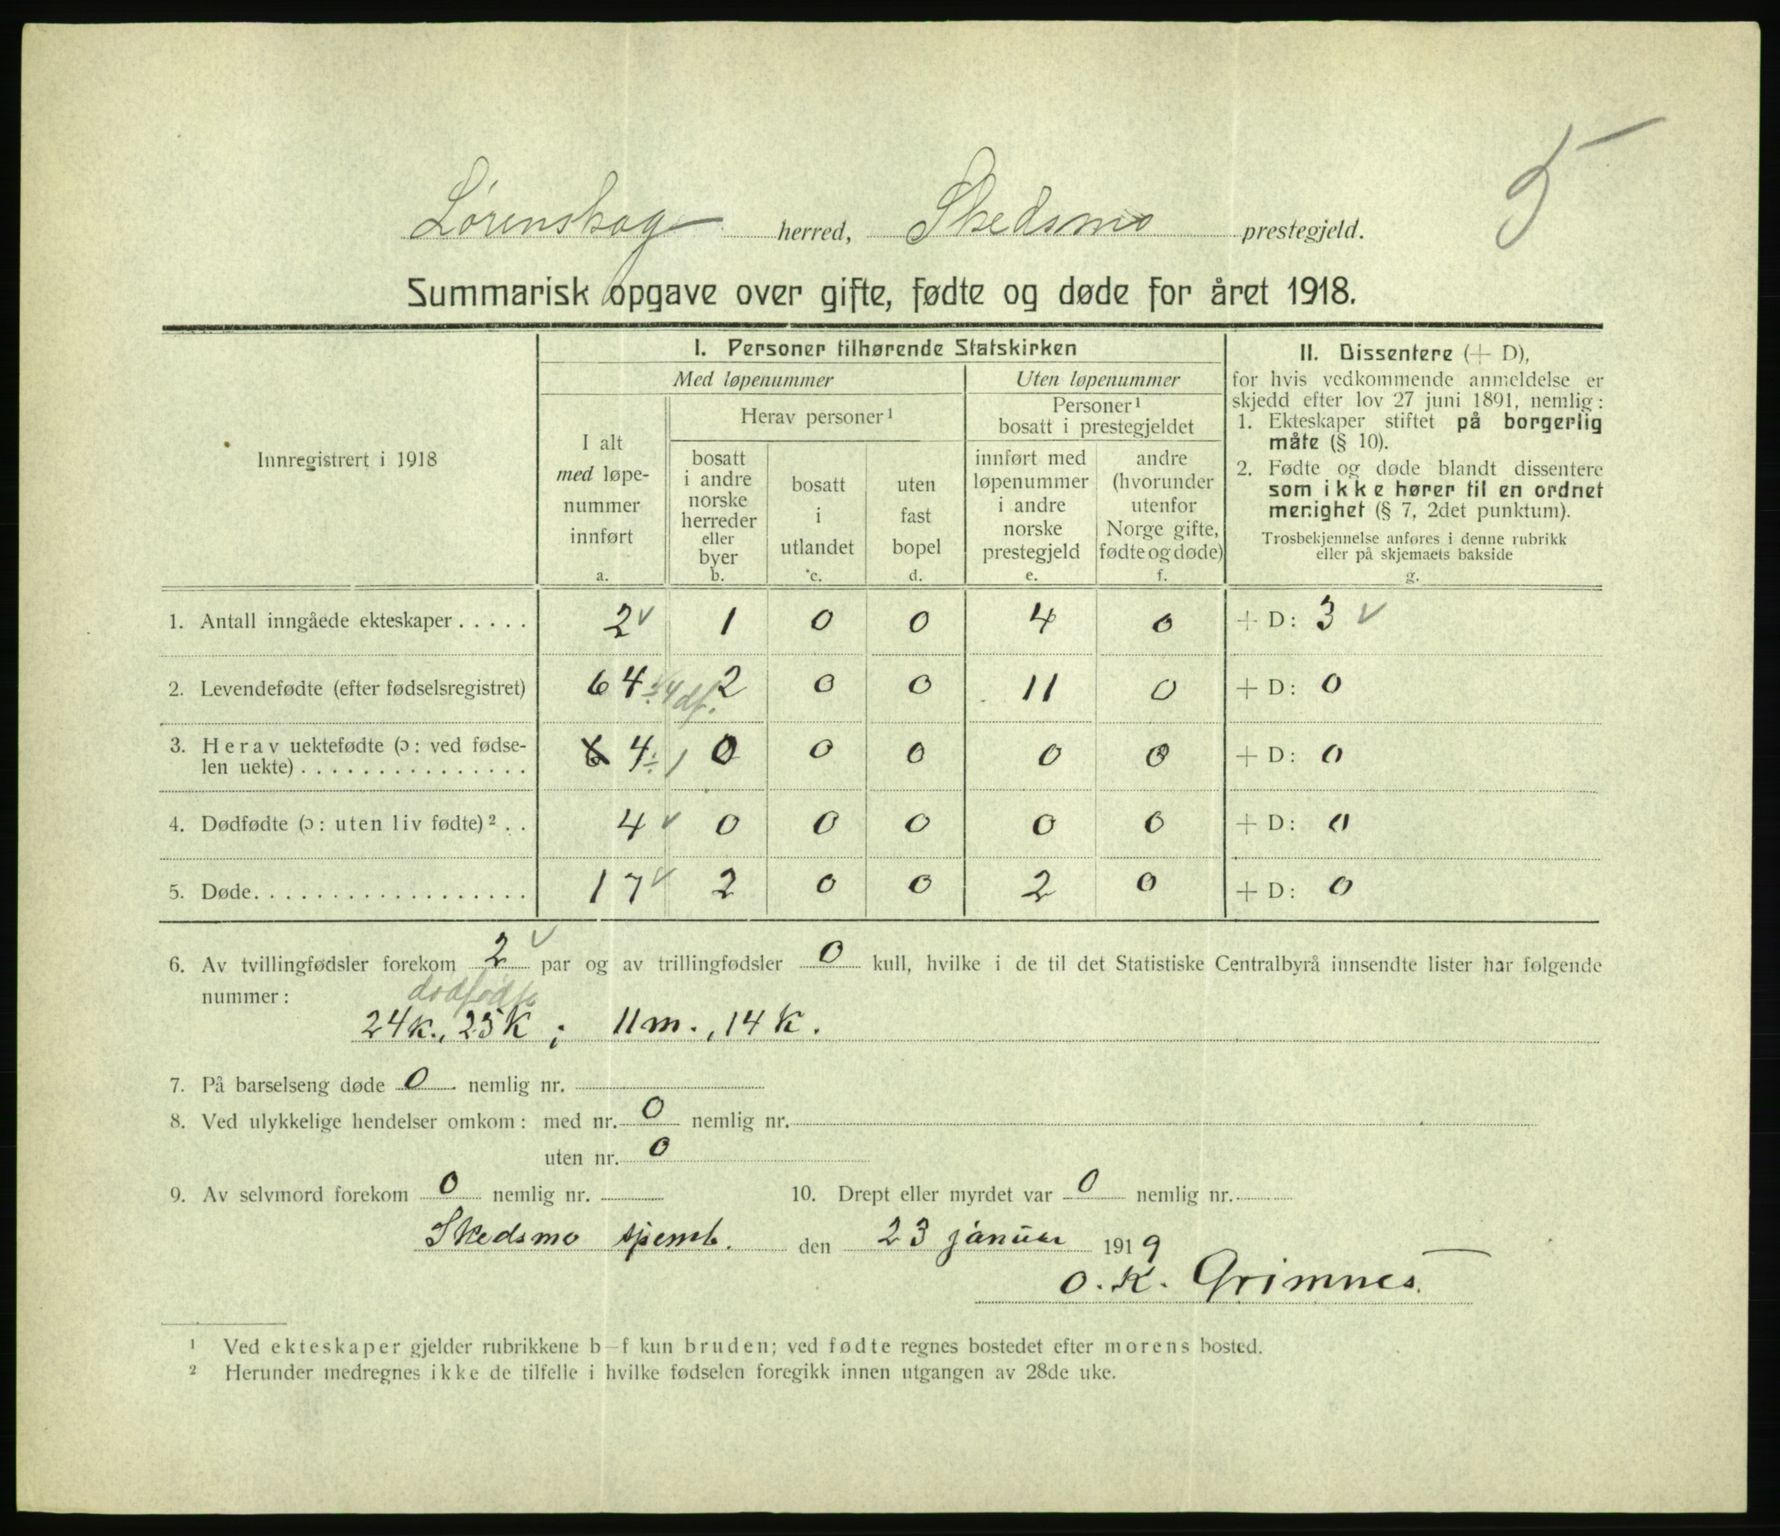 5
Lørenskog herred, Skedsmo prestegjeld.
Summarisk opgave over gifte, fødte og døde for året 1918.
Innregistrert i 1918
I. Personer tilhørende Statskirken
Med løpenummer
Uten løpenummer
I alt
med løpe-
nummer
innført
a.
Herav personer¹
bosatt
i andre
norske
herreder
eller
byer
b.
bosatt
i
utlandet
c.
uten
fast
bopel
d.
Personer¹
bosatt i prestegjeldet
innført med
løpenummer
i andre
norske
prestegjeld
e.
andre
(hvorunder
utenfor
Norge gifte,
fødte og døde)
f.
II. Dissentere (+ D),
for hvis vedkommende anmeldelse er
skjedd efter lov 27 juni 1891, nemlig:
1. Ekteskaper stiftet på borgerlig
måte (§ 10).
2. Fødte og døde blandt dissentere
som ikke hører til en ordnet
menighet (§ 7, 2det punktum).
Trosbekjennelse anføres i denne rubrikk
eller på skjemaets bakside
g.
1. Antall inngåede ekteskaper . . . . . 2 ✓ 1 0 0 4 0 + D: 3 ✓
2. Levendefødte (efter fødselsregistret) 64 ÷ 4 df. 2 0 0 11 0 + D: 0
3. Herav uektefødte (ɔ: ved fødse-
len uekte) . . . . . . . . . . . . . . . 4 ÷ 1 0 0 0 0 0 + D: 0
4. Dødfødte (ɔ: uten liv fødte)² . . 4 ✓ 0 0 0 0 0 + D: 0
5. Døde. . . . . . . . . . . . . . . . . . 17 ✓ 2 0 0 2 0 + D: 0
6. Av tvillingfødsler forekom 2 ✓ par og av trillingfødsler 0 kull, hvilke i de til det Statistiske Centralbyrå innsendte lister har følgende
nummer:
dødfødte
24 k., 25 K ; 11 m., 14 K.
7. På barselseng døde 0 nemlig nr.
8. Ved ulykkelige hendelser omkom: med nr. 0 nemlig nr.
uten nr. 0
9. Av selvmord forekom 0 nemlig nr. 10. Drept eller myrdet var 0 nemlig nr.
Skedsmo den 23 januar 1919
O. K. Grimnes.
¹ Ved ekteskaper gjelder rubrikkene b–f kun bruden; ved fødte regnes bostedet efter morens bosted.
² Herunder medregnes ikke de tilfelle i hvilke fødselen foregikk innen utgangen av 28de uke.